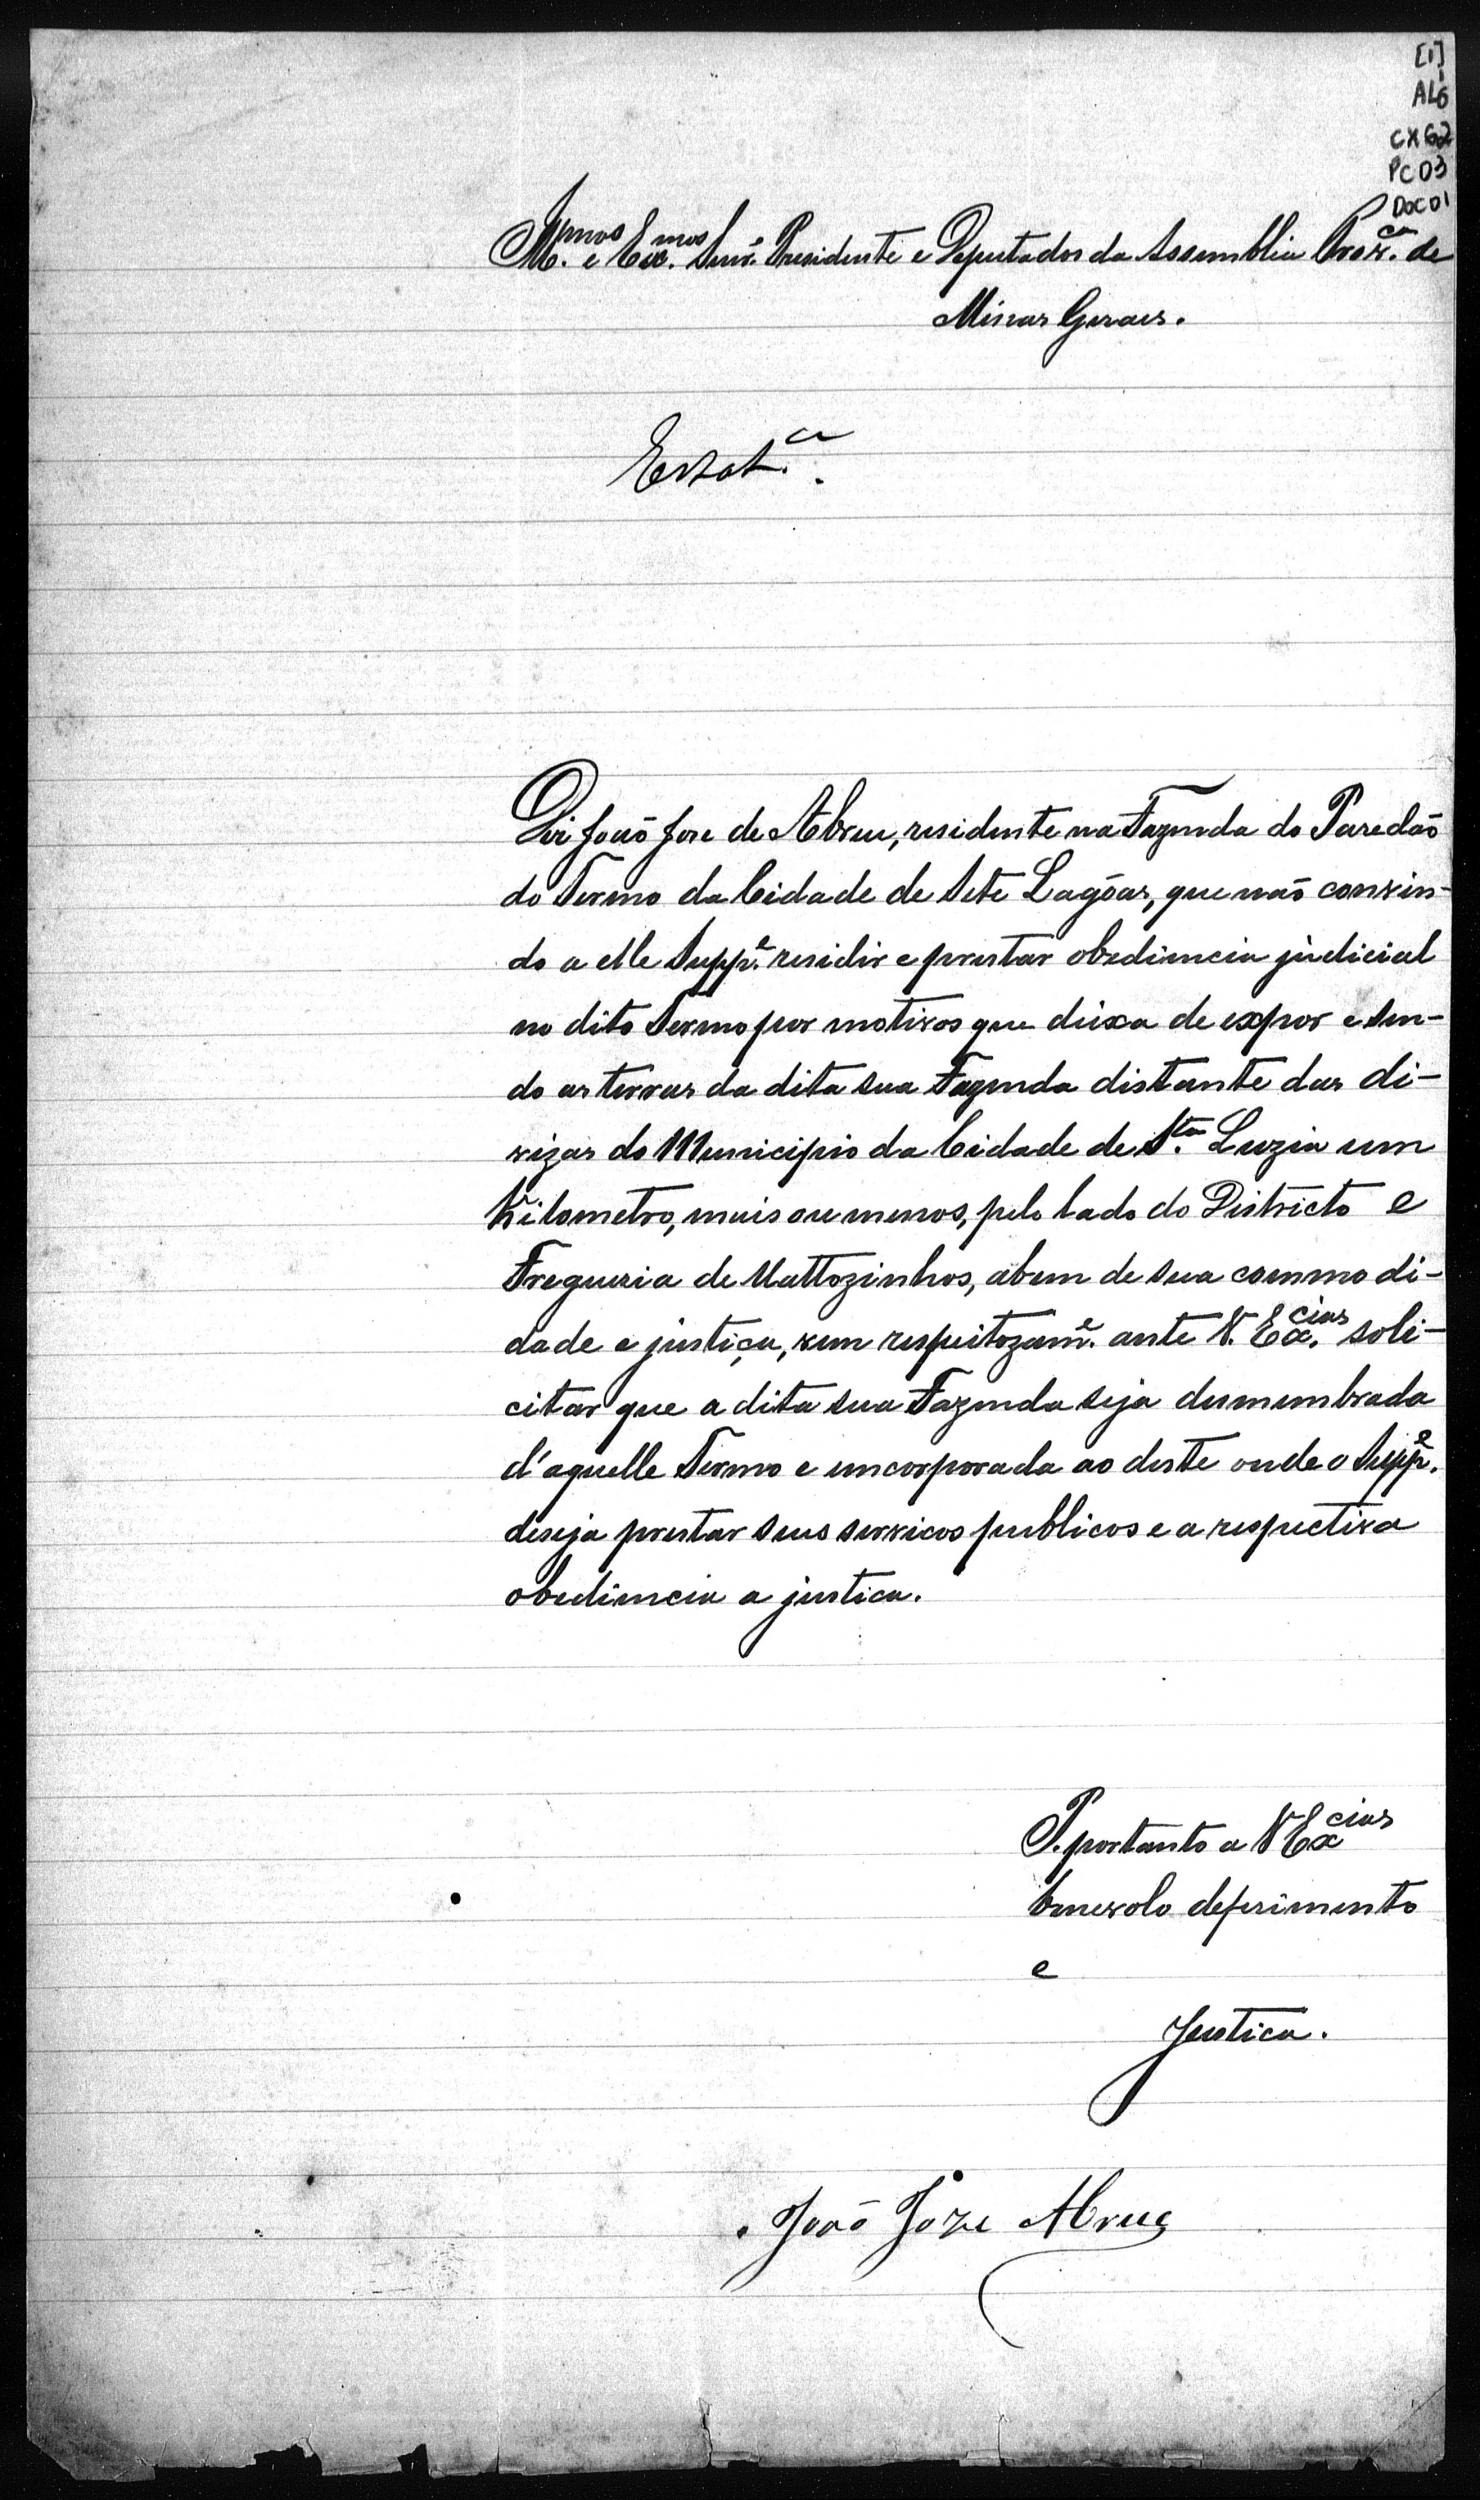 [1]
AL6
CX62
PC03
DOC01
Ill.mos e Ex.mos Senr.s Presidente e Deputados da Assemblia Prov.ca de
Minas Geraes.
Diz João Jose de Abreu, residente na Fazenda do Paredão
do Termo da Cidade de Sete Lagôas, que não convin-
do a elle Supp.e residir e prestar obediencia judicial
no dito Termo por motivos que deixa de expor e sen-
do as terras da dita sua Fazenda distante das di-
vizas do Municipio da Cidade de S.ta Luzia um
Kilometro, mais ou menos, pelo lado do Districto e
Freguesia de Mattozinhos, abem de sua commodi-
dade e justiça, vem respeitozam.e ante V. Ex.cias soli-
citar que a dita sua Fazenda seja desmembrada
d'aquelle Termo e encorporada ao deste onde o Supp.e
deseja prestar seus servicos publicos e a respectiva
obediencia a justica.
P. portanto a V Excias
benevolo deferimento
e
Justica.
João Joze Abreu